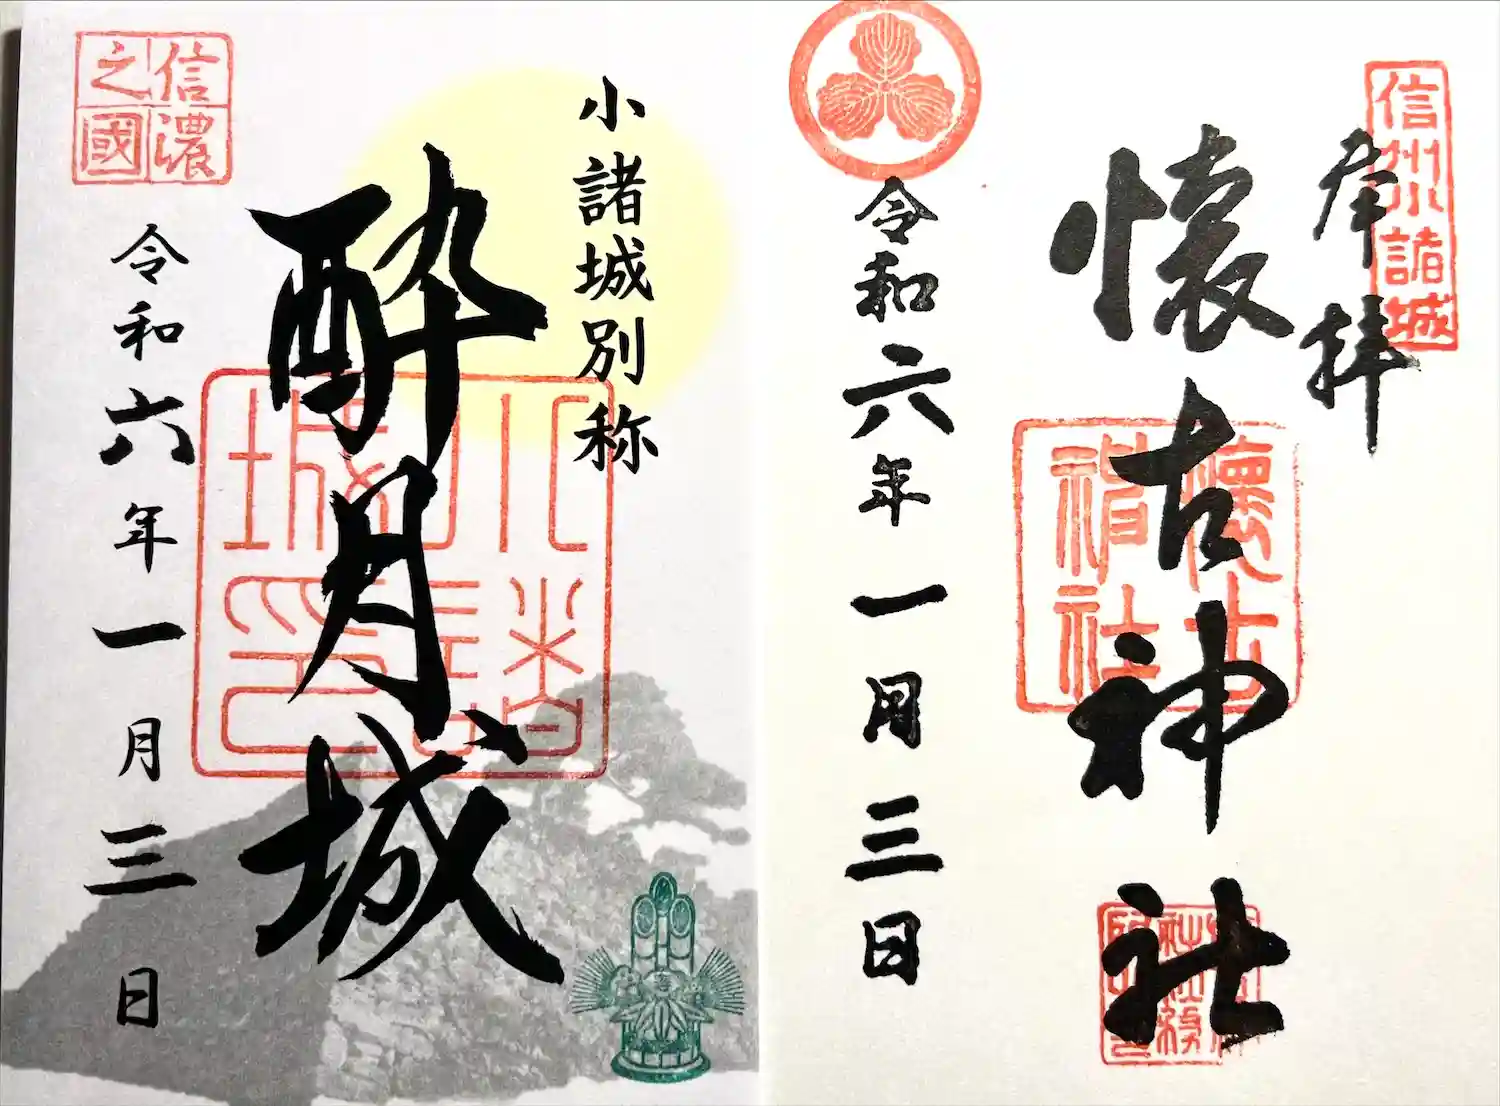 信州小諸城
奉拝
懐古神社
懐古神社
令和六年一月三日
小諸城別称
酔月城
小諸城印
信濃之國
令和六年一月三日